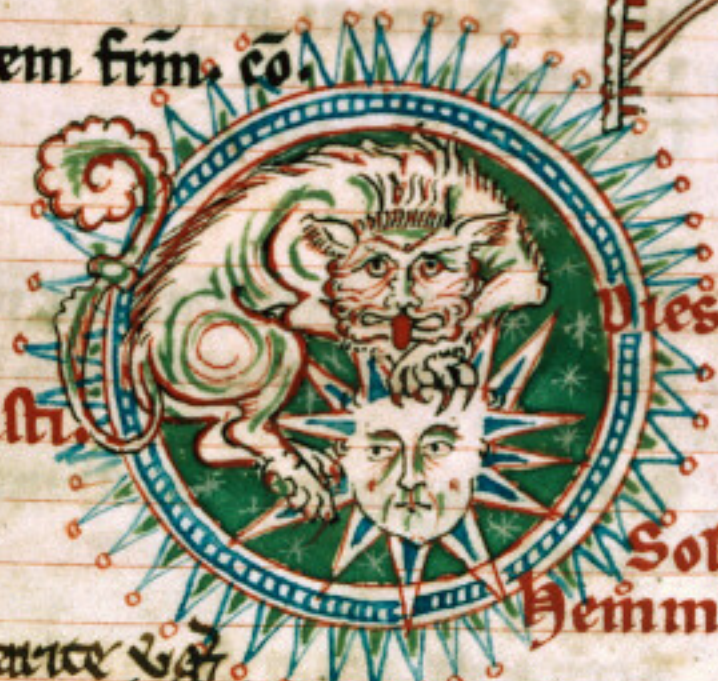 em frm̄. cō.
Dies
sti.
Sol
Hem̄m